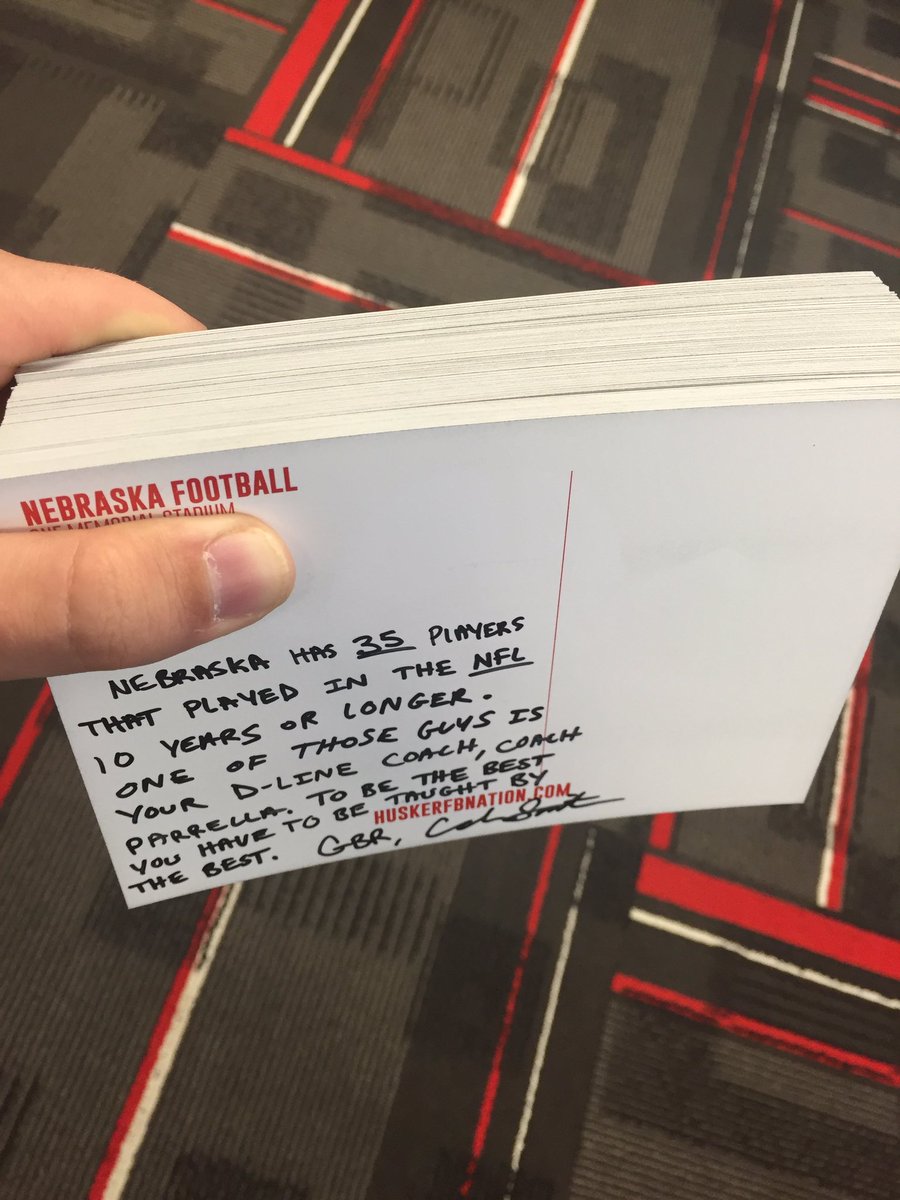 NEBRASKA FOOTBALL
ONE MEMORIAL STADIUM
NEBRASKA HAS 35 PLAYERS
THAT PLAYED IN THE NFL
10 YEARS OR LONGER.
ONE OF THOSE GUYS IS
YOUR D-LINE COACH, COACH
PARRELLA. TO BE THE BEST
YOU HAVE TO BE TAUGHT BY
THE BEST. GBR,
HUSKERFBNATION.COM